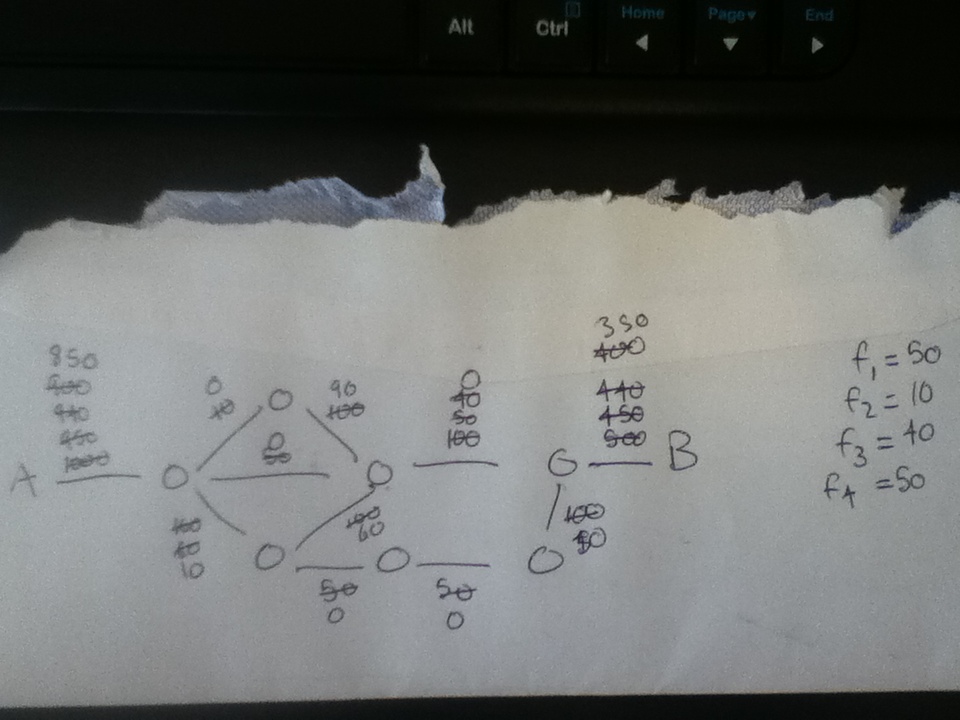 Alt Ctrl Home Page End
850
400
940
950
1000
A
0
10
90
100
0
50
0
40
50
100
350
400
440
450
500
B
10
100
60
50
0
50
0
100
f₁ = 50
f₂ = 10
f₃ = 40
f₄ = 50